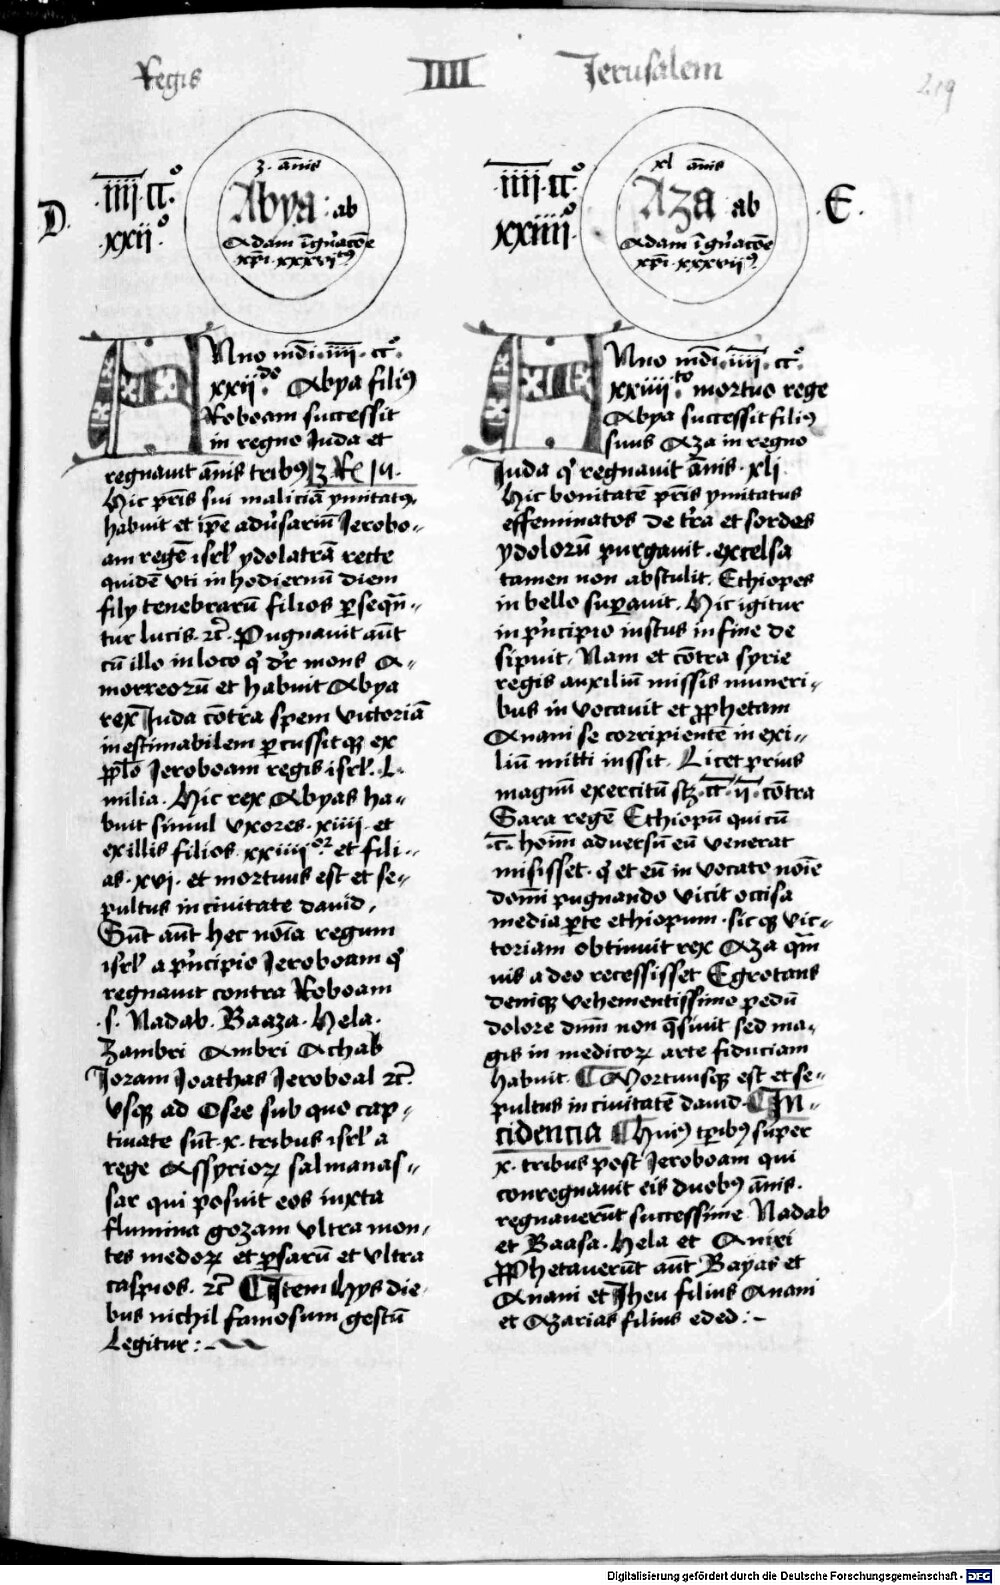 Regis IIII Jerusalem
219
D.
·iiii·cc°
·xxii°
3· ānis
Abya : ab
Adam ī gn̄acōe
xp̄i · xxxvitꝰ
·iiii·cc°
xxiiii°
xl ānis
Aza ab
Adam ī gn̄acōe
xp̄i · xxxviiꝰ
·E·
ANno mūdi · iiii · cc°·
xxiido · Abya filiꝰ
Roboam successit
in regno Juda et
regnauit ānis tribꝰ
Hic pr̄is sui maliciā ymitatꝰ
habuit et ip̄e adūsariū Jerobo-
am regē isrl̄ ydolatrā recte
quidē vti in hodiernū diem
filÿ tenebrarū filios ꝑsequū-
tur lucis · ꝛc̄ · Pugnauit aūt
cū illo in loco qͥ dr̄ mons A-
morreorū et habuit Abya
rex Juda cōtra spem victoriā
inestimabilem ꝑcussitqꝫ ex
pp̄lo Jeroboam regis isrl̄ · L·
milia · Hic rex Abyas ha-
buit simul vxores · xiiii · et
ex illis filios · xxiiiior et fili-
as · xvi · et mortuus est et se-
pultus in ciuitate dauid ·
Sūt aūt hec noīa regum
isrl̄ a pͥncipio Jeroboam qͥ
regnauit contra Roboam
·s· Nadab · Baaza · Hela ·
Zambri Ambri Achab
Joram Joathas Jeroboal ꝛc̄·
vsqꝫ ad Osee sub quo cap-
tiuate sūt · x · tribus isrl̄ a
rege Assyrioꝝ salmanas-
sar qui posuit eos iuxta
flumina gozam vltra mon-
tes medoꝝ et ꝑsarū et vltra
caspios · ꝛc̄ ¶ Item hys die-
bus nichil famosum gestū
legitur :~
ANno mūdi · iiii · cc°·
xxiiiito · mortuo rege
Abya successit filiꝰ
suus Aza in regno
Juda qͥ regnauit ānis · xli
Hic bonitatē pr̄is ymitatus
effeminatos de tr̄a et sordes
ydolorū purgauit · excelsa
tamen non abstulit · Ethiopes
in bello suꝑauit · Hic igitur
in pͥncipio iustus in fine de
sipuit · Nam et cōtra syrie
regis auxiliū missis muneri-
bus in vocauit et ꝓphetam
Anani se corripientē in exi-
liū mitti iussit · Licet prius
magnū exercitū sꝫ · cc̄ · ii̅ · cōtra
Sara regē Ethiopū qui cū
·c̄· hom̄ aduersū eū venerat
misisset · qͥ et eū in vocato noīe
domī pugnando vicit occisa
media ꝑte ethiopum · sicqꝫ vic-
toriam obtinuit rex Aza qm̄
uis a deo recessisset Egrotans
deniqꝫ vehementissimo pedū
dolore dn̄m non q̄siuit sed ma-
gis in medicoꝝ arte fiduciam
habuit · ¶ Mortuusqꝫ est et se-
pultus in ciuitatē dauid · ¶ In-
cidencia ¶ Huiꝰ tꝑibꝰ super
x · tribus post Jeroboam qui
conregnauit eis duobꝰ ānis ·
regnauerūt successiue Nadab
et Baasa · Hela et Amri
ꝓphetauerūt aūt Bayas et
Anani et Jheu filius Anani
et Azarias filius eded :~
Digitalisierung gefördert durch die Deutsche Forschungsgemeinschaft - DFG